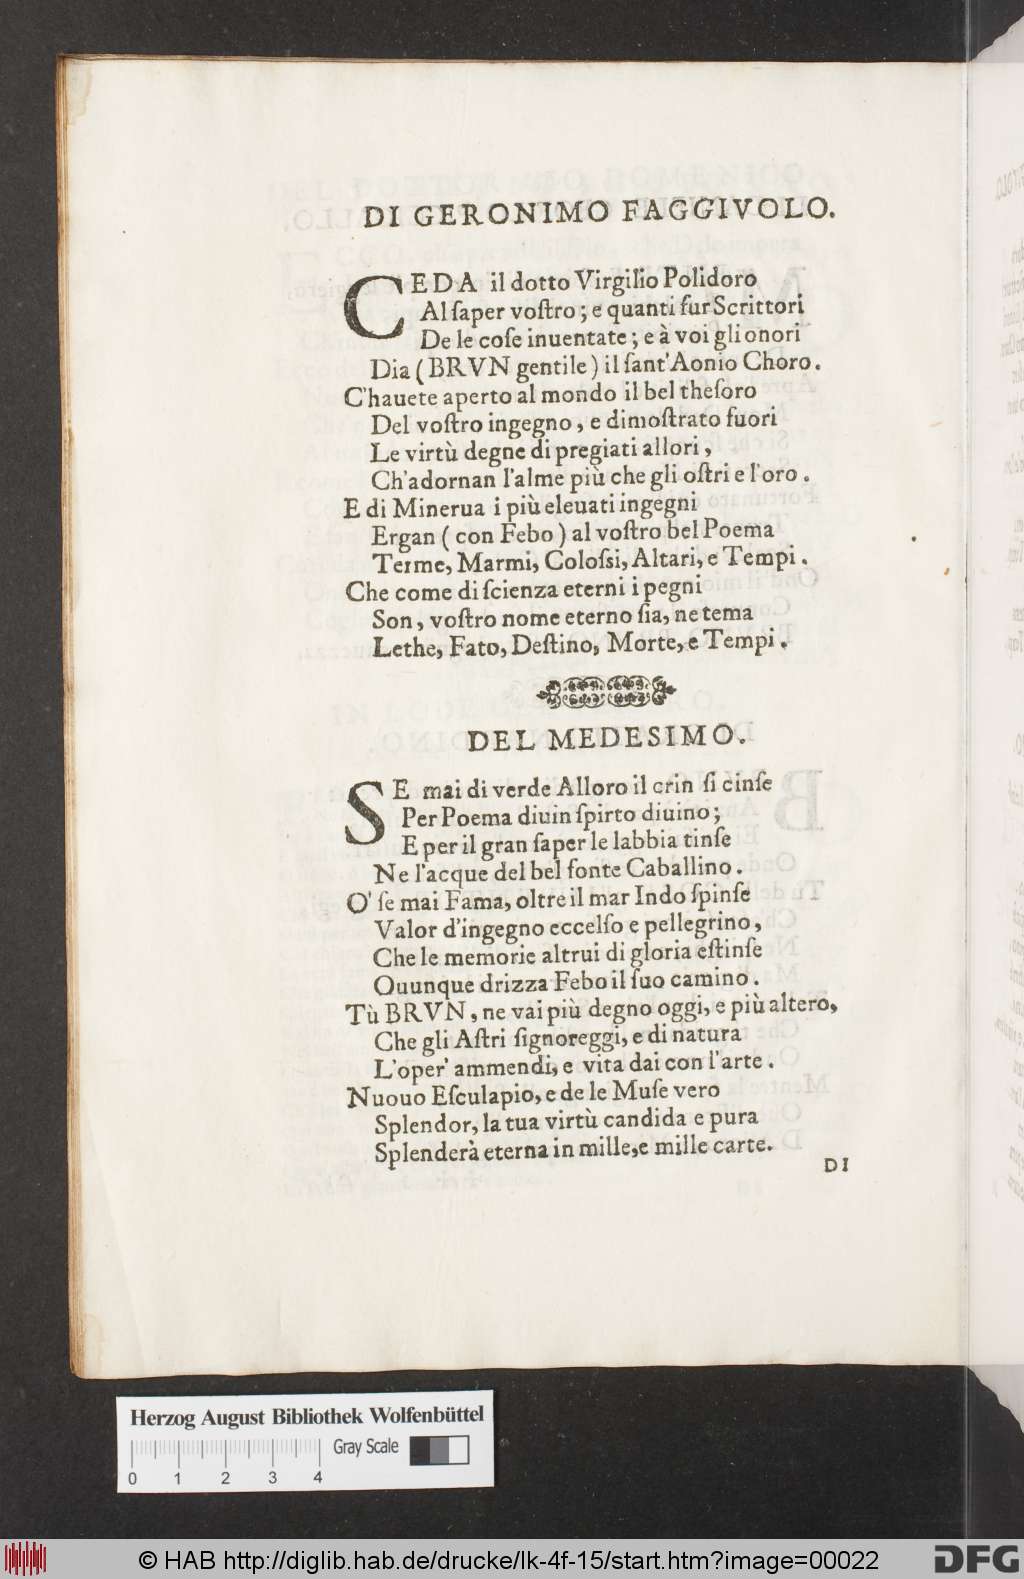 DI GERONIMO FAGGIVOLO.
CEDA il dotto Virgilio Polidoro
Al ſaper voſtro; e quanti fur Scrittori
De le coſe inuentate; e à voi gli onori
Dia (BRVN gentile) il ſant'Aonio Choro.
C'hauete aperto al mondo il bel theſoro
Del voſtro ingegno, e dimoſtrato fuori
Le virtù degne di pregiati allori,
Ch'adornan l'alme più che gli oſtri e l'oro.
E di Minerua i più eleuati ingegni
Ergan (con Febo) al voſtro bel Poema
Terme, Marmi, Coloſsi, Altari, e Tempi.
Che come di ſcienza eterni i pegni
Son, voſtro nome eterno ſia, ne tema
Lethe, Fato, Deſtino, Morte, e Tempi.
DEL MEDESIMO.
SE mai di verde Alloro il crin ſi cinſe
Per Poema diuin ſpirto diuino;
E per il gran ſaper le labbia tinſe
Ne l'acque del bel fonte Caballino.
O' ſe mai Fama, oltre il mar Indo ſpinſe
Valor d'ingegno eccelſo e pellegrino,
Che le memorie altrui di gloria eſtinſe
Ouunque drizza Febo il ſuo camino.
Tù BRVN, ne vai più degno oggi, e più altero,
Che gli Aſtri ſignoreggi, e di natura
L'oper' ammendi, e vita dai con l'arte.
Nuouo Eſculapio, e de le Muſe vero
Splendor, la tua virtù candida e pura
Splenderà eterna in mille, e mille carte.
DI
Herzog August Bibliothek Wolfenbüttel
Gray Scale
0 1 2 3 4
© HAB http://diglib.hab.de/drucke/lk-4f-15/start.htm?image=00022
DFG